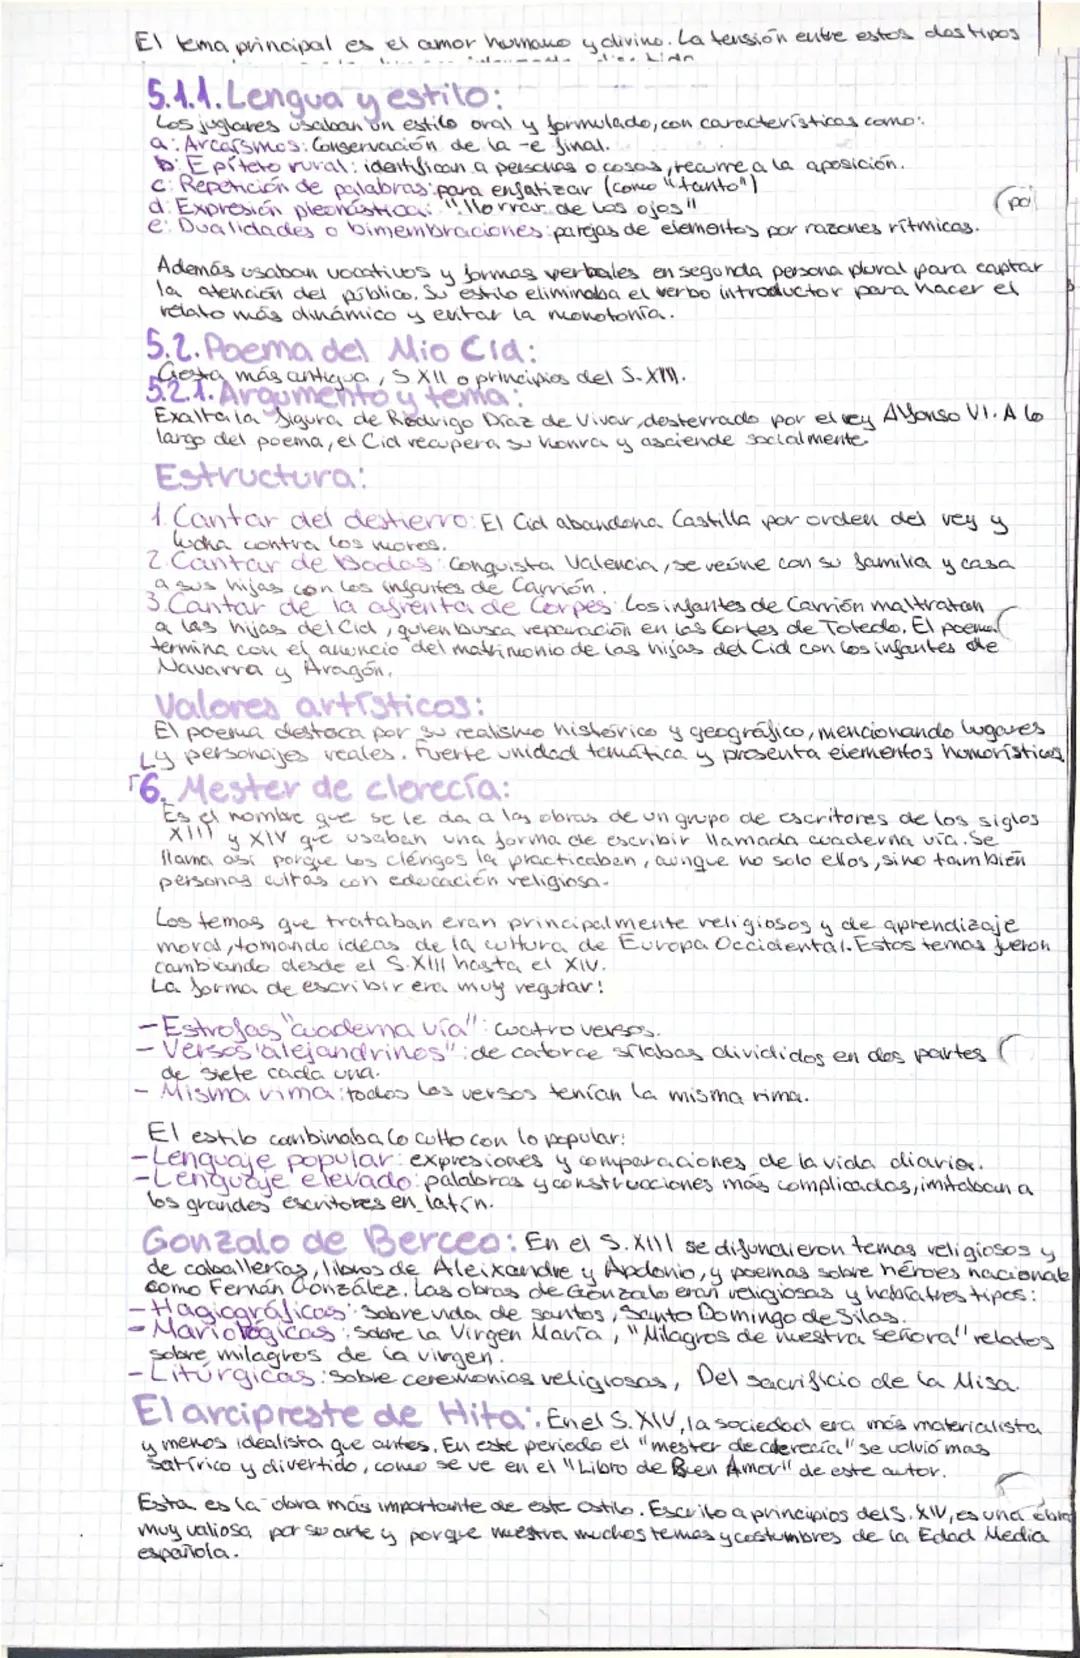 El tema principal es el amor humano y divino. La tensión entre estos dos tipos
5.1.1. Lengua y estilo:
Los juglares usaban un estilo oral y formulado, con características como:
a: Arcaísmos: Conservación de la -e final.
b: Epíteto rural: identifican a personas o cosas, recurre a la aposición.
c: Repetición de palabras: para enfatizar (como "tanto")
d: Expresión pleonástica: "llorrar de los ojos"
(pol
e: Dualidades o bimembraciones: parejas de elementos por razones rítmicas.
Además usaban vocativos y formas verbales en segunda persona plural para captar
la atención del público. Su estilo eliminaba el verbo introductor para hacer el
relato más dinámico y evitar la monotonía.
5.2. Poema del Mio Cid:
Gesta más antigua, S XII o principios del S. XIII.
5.2.1. Argumento y tema:
Exalta la figura de Rodrigo Díaz de Vivar, desterrado por el rey Alfonso VI. A lo
largo del poema, el Cid recupera su honra y asciende socialmente.
Estructura:
1. Cantar del destierro: El Cid abandona Castilla por orden del rey y
lucha contra los moros.
2. Cantar de Bodas: Conquista Valencia, se reúne con su familia y casa
a sus hijas con los infantes de Carrión.
3. Cantar de la afrenta de Corpes: Los infantes de Carrión maltratan
a las hijas del Cid, quien busca reparación en las Cortes de Toledo. El poema
termina con el anuncio del matrimonio de las hijas del Cid con los infantes de
Navarra y Aragón.
Valores artísticos:
El poema destaca por su realismo histórico y geográfico, mencionando lugares
y personajes reales. Fuerte unidad temática y presenta elementos homorísticos
6. Mester de clerecía:
Es el nombre que se le da a las obras de un grupo de escritores de los siglos
XIII y XIV que usaban una forma de escribir llamada cuaderna vía. Se
llama así porque los clérigos la practicaban, aunque no solo ellos, sino también
personas cultas con educación religiosa.
Los temas que trataban eran principalmente religiosos y de aprendizaje
moral, tomando ideas de la cultura de Europa Occidental. Estos temas fueron
cambiando desde el S. XIII hasta el XIV.
La forma de escribir era muy regular:
- Estrofas "cuaderna vía": cuatro versos.
- Versos "alejandrinos": de catorce sílabas divididos en dos partes
de siete cada una.
- Misma rima: todos los versos tenían la misma rima.
El estilo combinaba lo culto con lo popular:
- Lenguaje popular: expresiones y comparaciones de la vida diaria.
- Lenguaje elevado: palabras y construcciones más complicadas, imitaban a
los grandes escritores en latín.
Gonzalo de Berceo: En el S. XIII se difundieron temas religiosos y
de caballerías, libros de Aleixandre y Apolonio, y poemas sobre héroes nacionales
como Fernán González. Las obras de Gonzalo eran religiosas y había tres tipos:
- Hagiográficas: Sobre vida de santos, Santo Domingo de Silas.
- Mariológicas: Sobre la Virgen María, "Milagros de nuestra señora" relatos
sobre milagros de la virgen.
- Litúrgicas: Sobre ceremonias religiosas, Del sacrificio de la Misa.
El arcipreste de Hita: En el S. XIV, la sociedad era más materialista
y menos idealista que antes. En este periodo el "mester de clerecía" se volvió mas
satírico y divertido, como se ve en el "Libro de Buen Amor" de este autor.
Esta es la obra más importante de este estilo. Escrito a principios del S. XIV, es una obra
muy valiosa por su arte y porque muestra muchos temas y costumbres de la Edad Media
española.